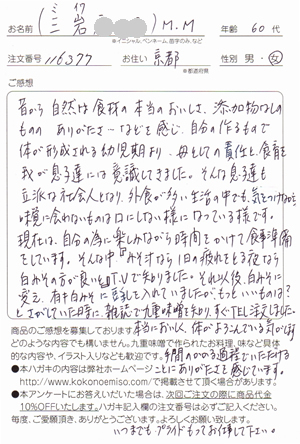 お名前 ( ) M.M 年齢 60 代
※イニシャル、ペンネーム、苗字のみ、など
注文番号 116377 お住い 京都 性別 男・女
※都道府県
ご感想
昔から自然な食材の本当のおいしさ、添加物なしの
ものの ありがたさ…などを感じ、自分の作るもので
体が形成される幼児期より、母としての責任と食育を
我が息子達には意識してきました。そんな息子達も
立派な社会人となり、外食が多い生活の中でも、気をつけながら
味覚に合わないものは口にしない様になっている様です。
現在は、自分の為に楽しみながら時間をかけて食事準備
をしています。そんな中「みそ汁なら1日の疲れをとる夜なら
白みその方が良いと」T.Vで知りました。それ以後、白みそに
変え、白みそに豆乳を入れていましたが、もっといいものは?
とさがしていた時に、雑誌で九重味噌を知り、すぐTEL注文しました。
商品のご感想を募集しております! 本当においしく、体がよろこんでいる気がします
どのような内容でも構いません。九重味噌で作られたお料理、味など具体
的な内容や、イラスト入りなども歓迎です。手間のかかる過程でいただける
●本ハガキの内容は弊社ホームページ ことにありがたさと感じています。
http://www.kokonoemiso.com/で掲載させて頂く場合がございます。
●本アンケートにお答えいただいた場合は、次回ご注文の際に商品代金
10%OFFいたします。ハガキ記入欄の注文番号は必ずご記入ください。
毎度、ご愛顧頂き、ありがとうございます。よろしくお願い致します。
いつまでもプライドもってお仕事して下さい。